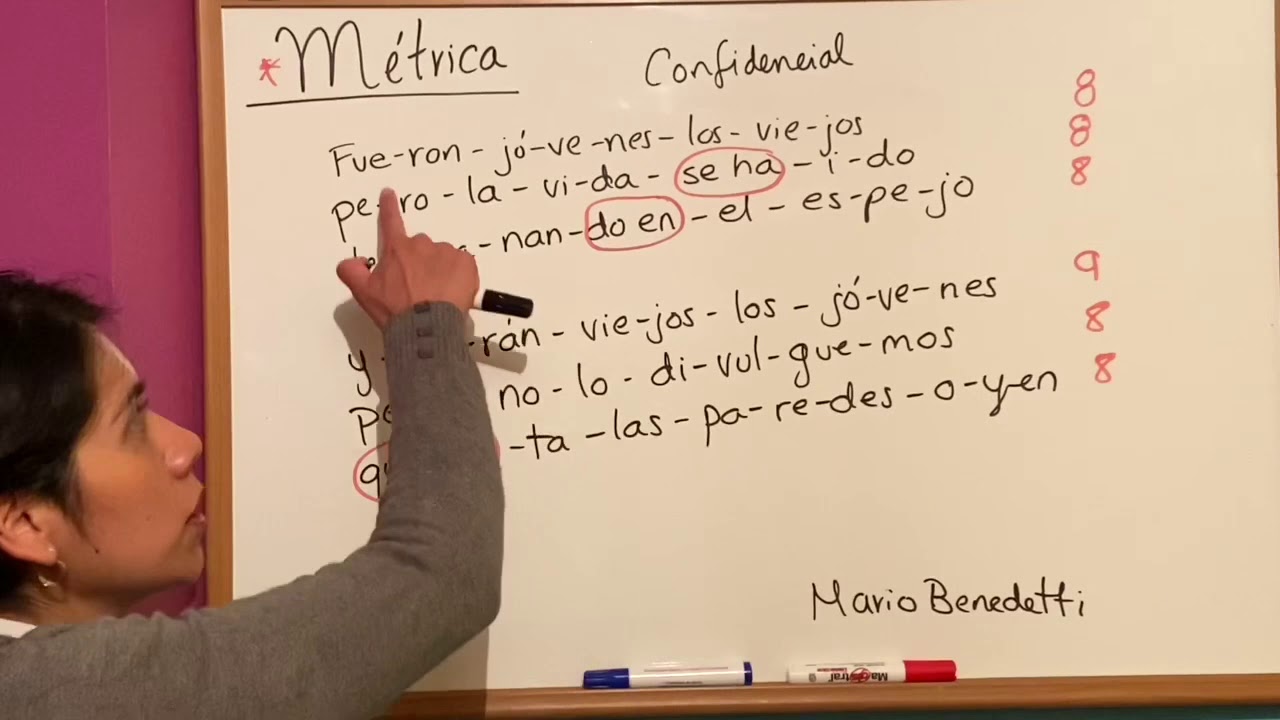 *Métrica
Confidencial
8
Fue-ron-jó-ve-nes-los-vie-jos
8
pe-ro-la-vi-da-se ha-i-do
8
-nan-do en-el-es-pe-jo
9
y -rán-vie-jos-los-jó-ve-nes
8
no-lo-di-vul-gue-mos
8
-ta-las-pa-re-des-o-y-en
Mario Benedetti